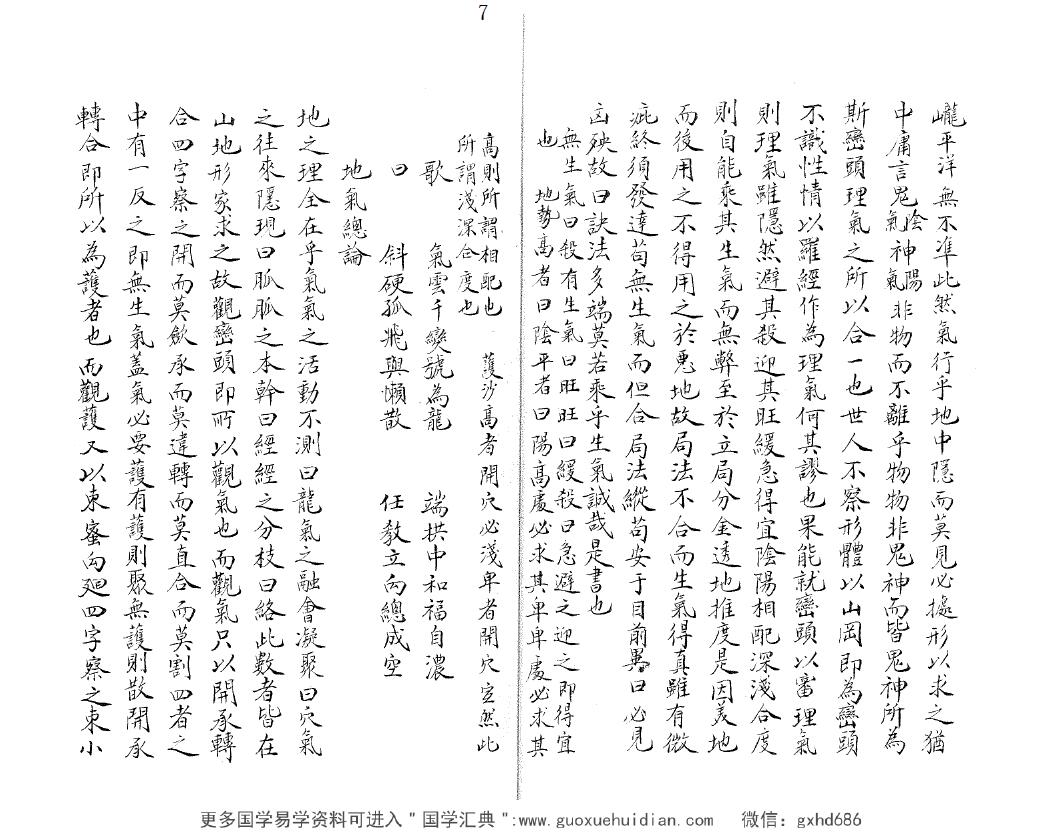 7
巄平洋無不准此然氣行乎地中隱而莫見必據形以求之猶
中庸言鬼陰氣神陽氣非物而不離乎物物非鬼神而皆鬼神所為
斯巒頭理氣之所以合一也世人不察形體以山岡即為巒頭
不識性情以羅經作為理氣何其謬也果能就巒頭以審理氣
則理氣雖隱然避其殺迎其旺緩急得宜陰陽相配深淺合度
則自能乘其生氣而無弊至於立局分金透地推度是因美地
而後用之不得用之於惡地故局法不合而生氣得真雖有微
疵終須發達苟無生氣而但合局法縱苟安于目前異日必見
凶殃故曰訣法多端莫若乘乎生氣誠哉是書也
無生氣曰殺有生氣曰旺旺曰緩殺曰急避之迎之即得宜
也 地勢高者曰陰平者曰陽高處必求其卑卑處必求其
高則所謂相配也 護沙高者開穴必淺卑者開穴宜然此
所謂淺深合度也
歌 氣雲千變號為龍 端拱中和福自濃
曰 斜硬孤飛與懶散 任教立向總成空
地氣總論
地之理全在乎氣氣之活動不測曰龍氣之融會凝聚曰穴氣
之往來隱現曰脈脈之本幹曰經經之分枝曰絡此數者皆在
山地形家求之故觀巒頭即所以觀氣也而觀氣只以開承轉
合四字察之開而莫斂承而莫違轉而莫直合而莫割四者之
中有一反之即無生氣蓋氣必要護有護則聚無護則散開承
轉合即所以為護者也而觀護又以束蜜向迴四字察之束小
更多国学易学资料可进入＂国学汇典＂:www.guoxuehuidian.com 微信: gxhd686